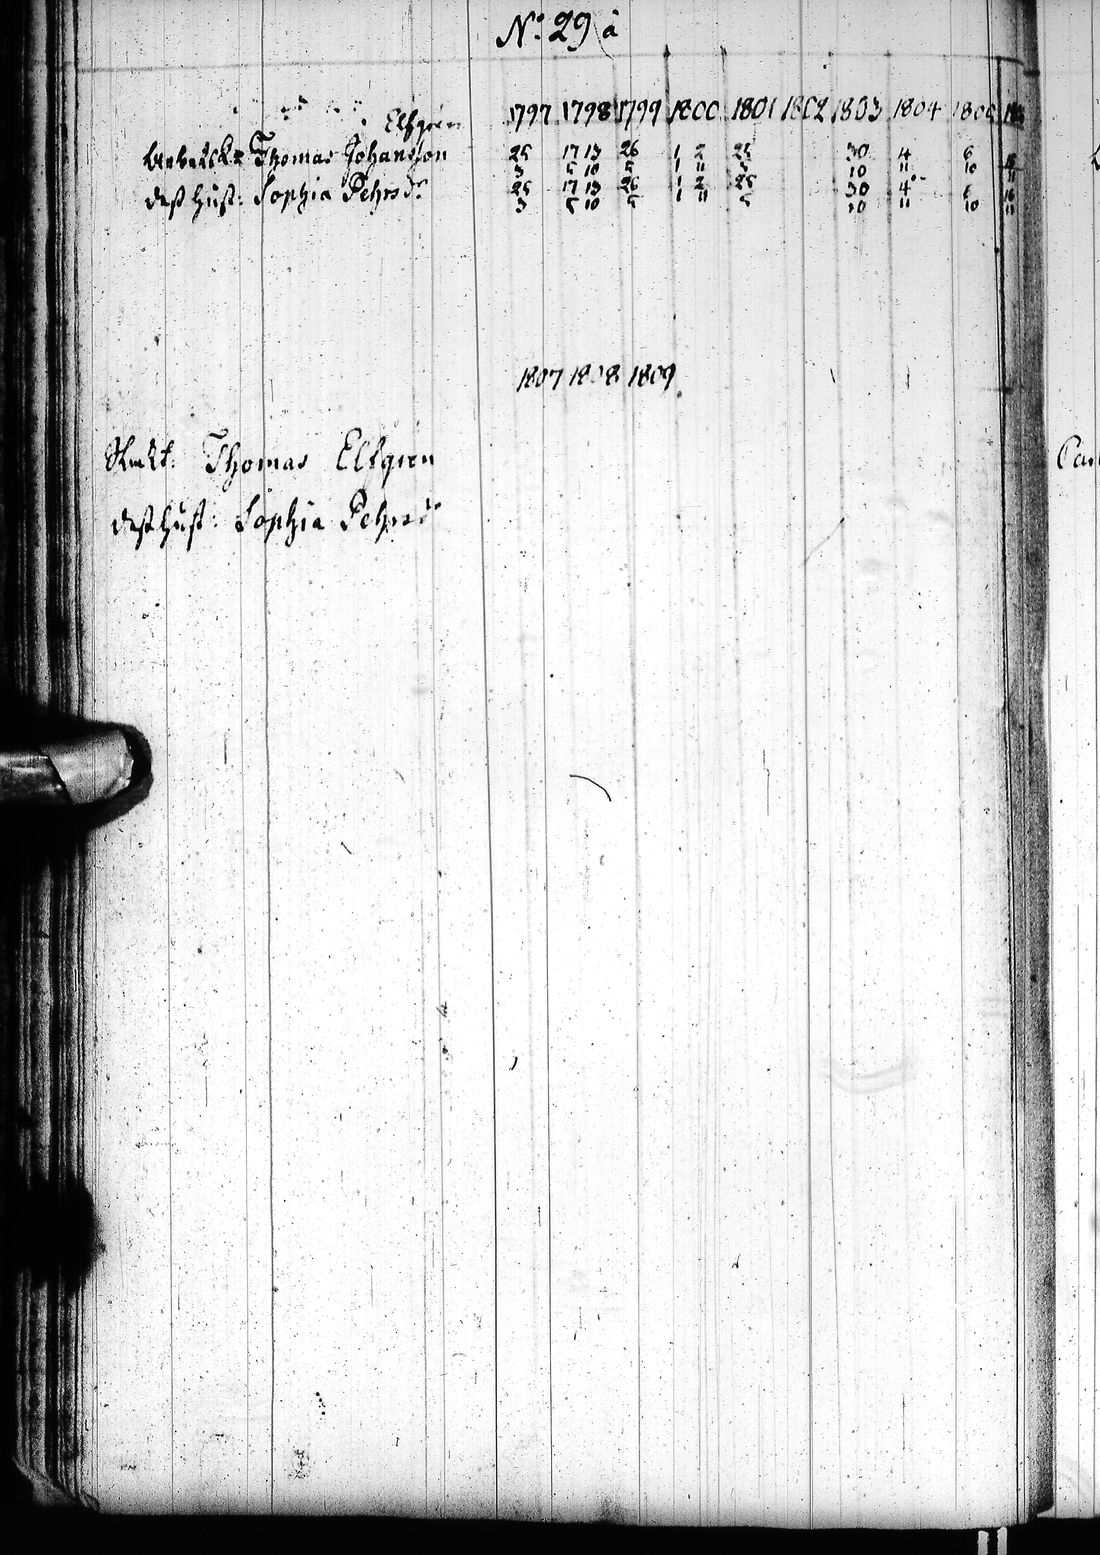 No: 29 a
1797 1798 1799 1800 1801 1802 1803 1804
Elfgren
Thomas Johansson 25 17 13 26 1 2 25 30 4 6
3 5 10 5 1 11 5 10 11 10
dess Hust: Sophia Pehrsdr 25 17 13 26 1 2 25 30 4 6
3 5 10 5 1 11 5 10 11 10
1807 1808 1809
Thomas Elfgren
dess Hust: Sophia Pehrsdr